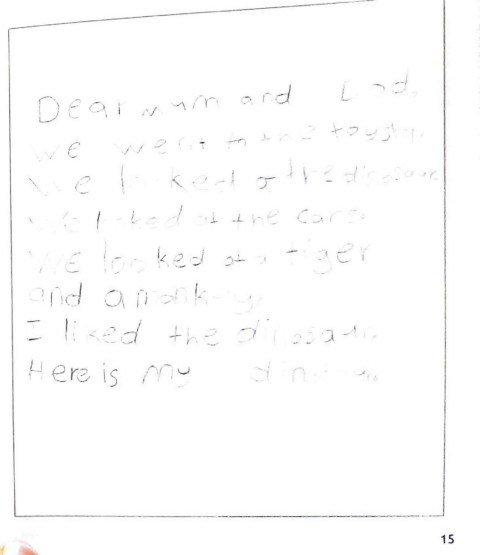 Dear mum and Dad.
We went to the toyshop.
We looked at the dinosaur.
We looked at the cars.
We looked at a tiger
and a monkey.
I liked the dinosaur.
Here is my dinosaur.
15